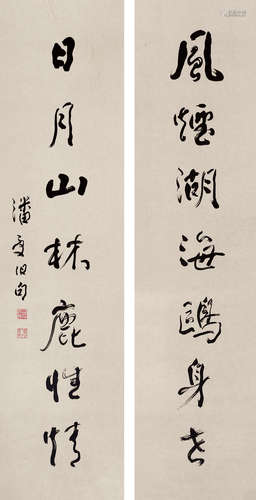 風煙湖海鷗身世
日月山林鹿性情
潘受旧句